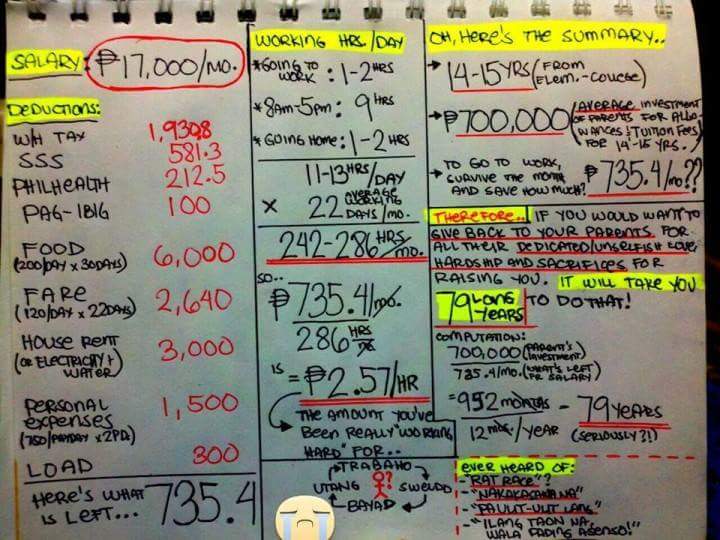 SALARY: ₱17,000/MO.
DEDUCTIONS:
W/H TAX 1,930.8
SSS 581.3
PHILHEALTH 212.5
PAG-IBIG 100
FOOD 6,000
(200/DAY x 30DAYS)
FARE 2,640
(120/DAY x 22DAYS)
HOUSE RENT 3,000
(OR ELECTRICITY +
WATER)
PERSONAL 1,500
EXPENSES
(750/PAYDAY x 2PD)
LOAD 300
HERE'S WHAT 735.4
IS LEFT...
WORKING HRS/DAY
*GOING TO
WORK : 1-2 HRS
*8AM-5PM: 9 HRS
*GOING HOME: 1-2 HRS
11-13 HRS/DAY
x 22 AVERAGE WORKING DAYS/MO.
242-286 HRS/MO.
SO..
₱735.4/MO.
286 HRS
IS = ₱2.57/HR
THE AMOUNT YOU'VE
BEEN REALLY "WORKING
HARD" FOR..
TRABAHO
UTANG SWELDO
BAYAD
OH, HERE'S THE SUMMARY..
→ 14-15 YRS (FROM
ELEM.-COLLEGE)
→ ₱700,000 (AVERAGE INVESTMENT
OF PARENTS FOR ALLO-
WANCES & TUITION FEES
FOR 14-15 YRS..)
→ TO GO TO WORK,
SURVIVE THE MONTH
AND SAVE HOW MUCH? ₱735.4/MO.??
THEREFORE.. IF YOU WOULD WANT TO
GIVE BACK TO YOUR PARENTS FOR
ALL THEIR DEDICATED/UNSELFISH LOVE,
HARDSHIP AND SACRIFICES FOR
RAISING YOU. IT WILL TAKE YOU
79 LONG YEARS TO DO THAT!
COMPUTATION:
700,000 (PARENT'S INVESTMENT)
735.4/MO. (WHAT'S LEFT PER SALARY)
=952 MONTHS = 79 YEARS
12 MOS./YEAR (SERIOUSLY?!)
EVER HEARD OF:
- "RAT RACE"?
- "NAKAKASAWA NA"
- "PAULIT-ULIT LANG"
- "ILANG TAON NA,
WALA PADING ASENSO!"